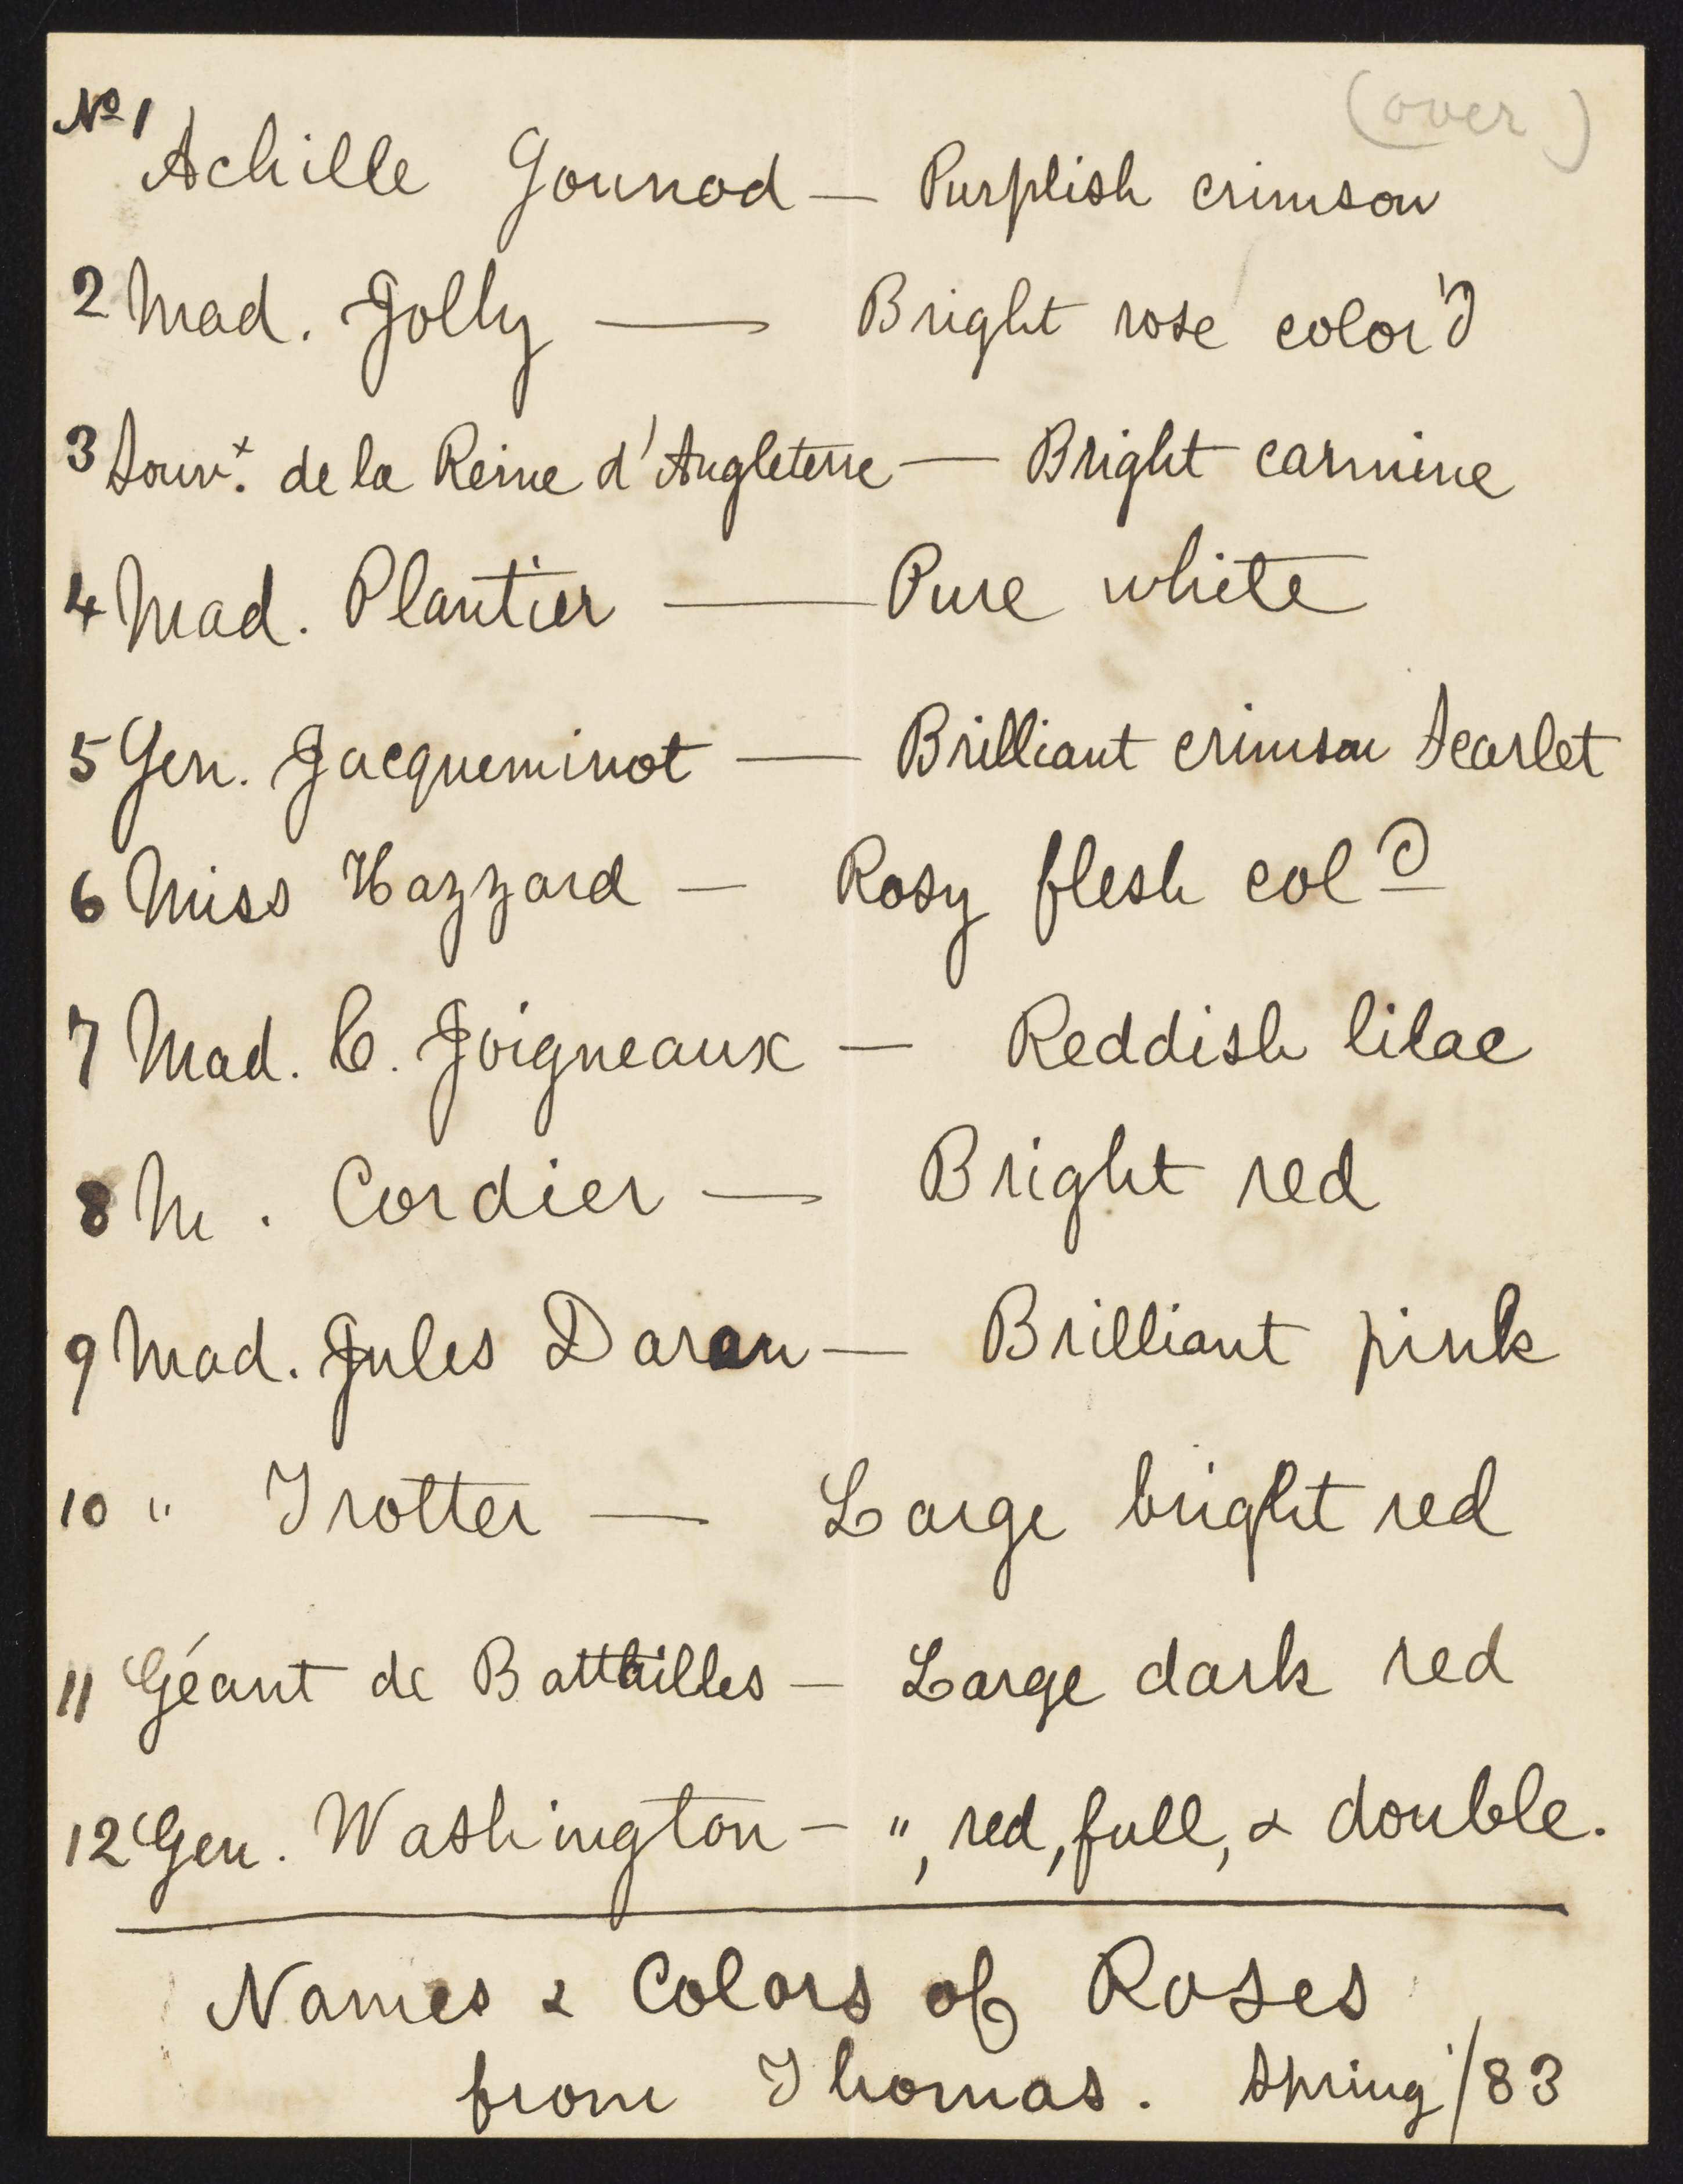 (over)
No 1 Achille Gounod — Purplish crimson
2 Mad. Jolly — Bright rose color'd
3 Souvt. de la Reine d'Angleterre — Bright carmine
4 Mad. Plantier — Pure white
5 Gen. Jacqueminot — Brilliant crimson scarlet
6 Miss Hazzard — Rosy flesh cold
7 Mad. C. Joigneaux — Reddish lilac
8 M. Cordier — Bright red
9 Mad. Jules Daran — Brilliant pink
10 " Trotter — Large bright red
11 Géant de Batthilles — Large dark red
12 Gen. Washington — ", red, full, & double.
Names & Colors of Roses
from Thomas. Spring '/83